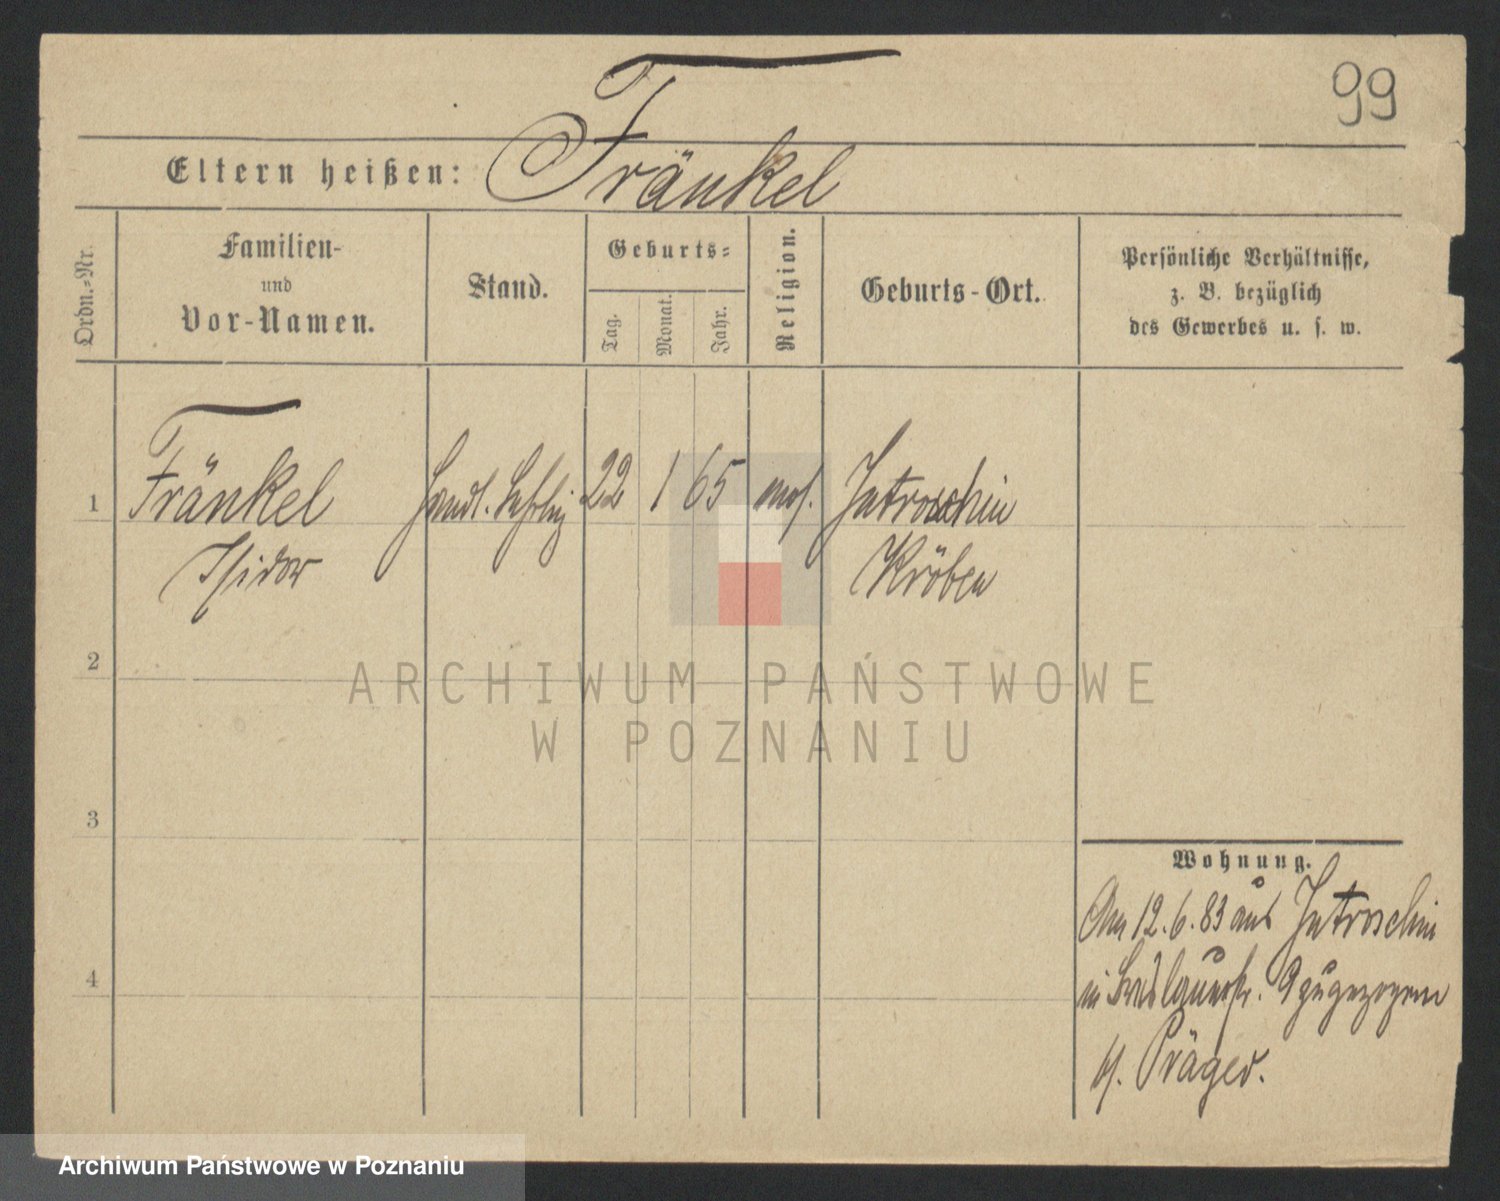 99
Eltern heißen: Fränkel
Ordn.-Nr.
Familien-
und
Vor-Namen.
Stand.
Geburts-
Tag.
Monat.
Jahr.
Religion.
Geburts-Ort.
Persönliche Verhältnisse,
z. B. bezüglich
des Gewerbes u. s. w.
1 Fränkel Handl. Lehrling 22 1 65 mos. Jutroschin
Isidor Kröben
2
ARCHIWUM PAŃSTWOWE
W POZNANIU
3
Wohnung.
Am 12.6.83 aus Jutroschin
in Breslauerstr. 9 zugezogen
b. Präger.
4
Archiwum Państwowe w Poznaniu